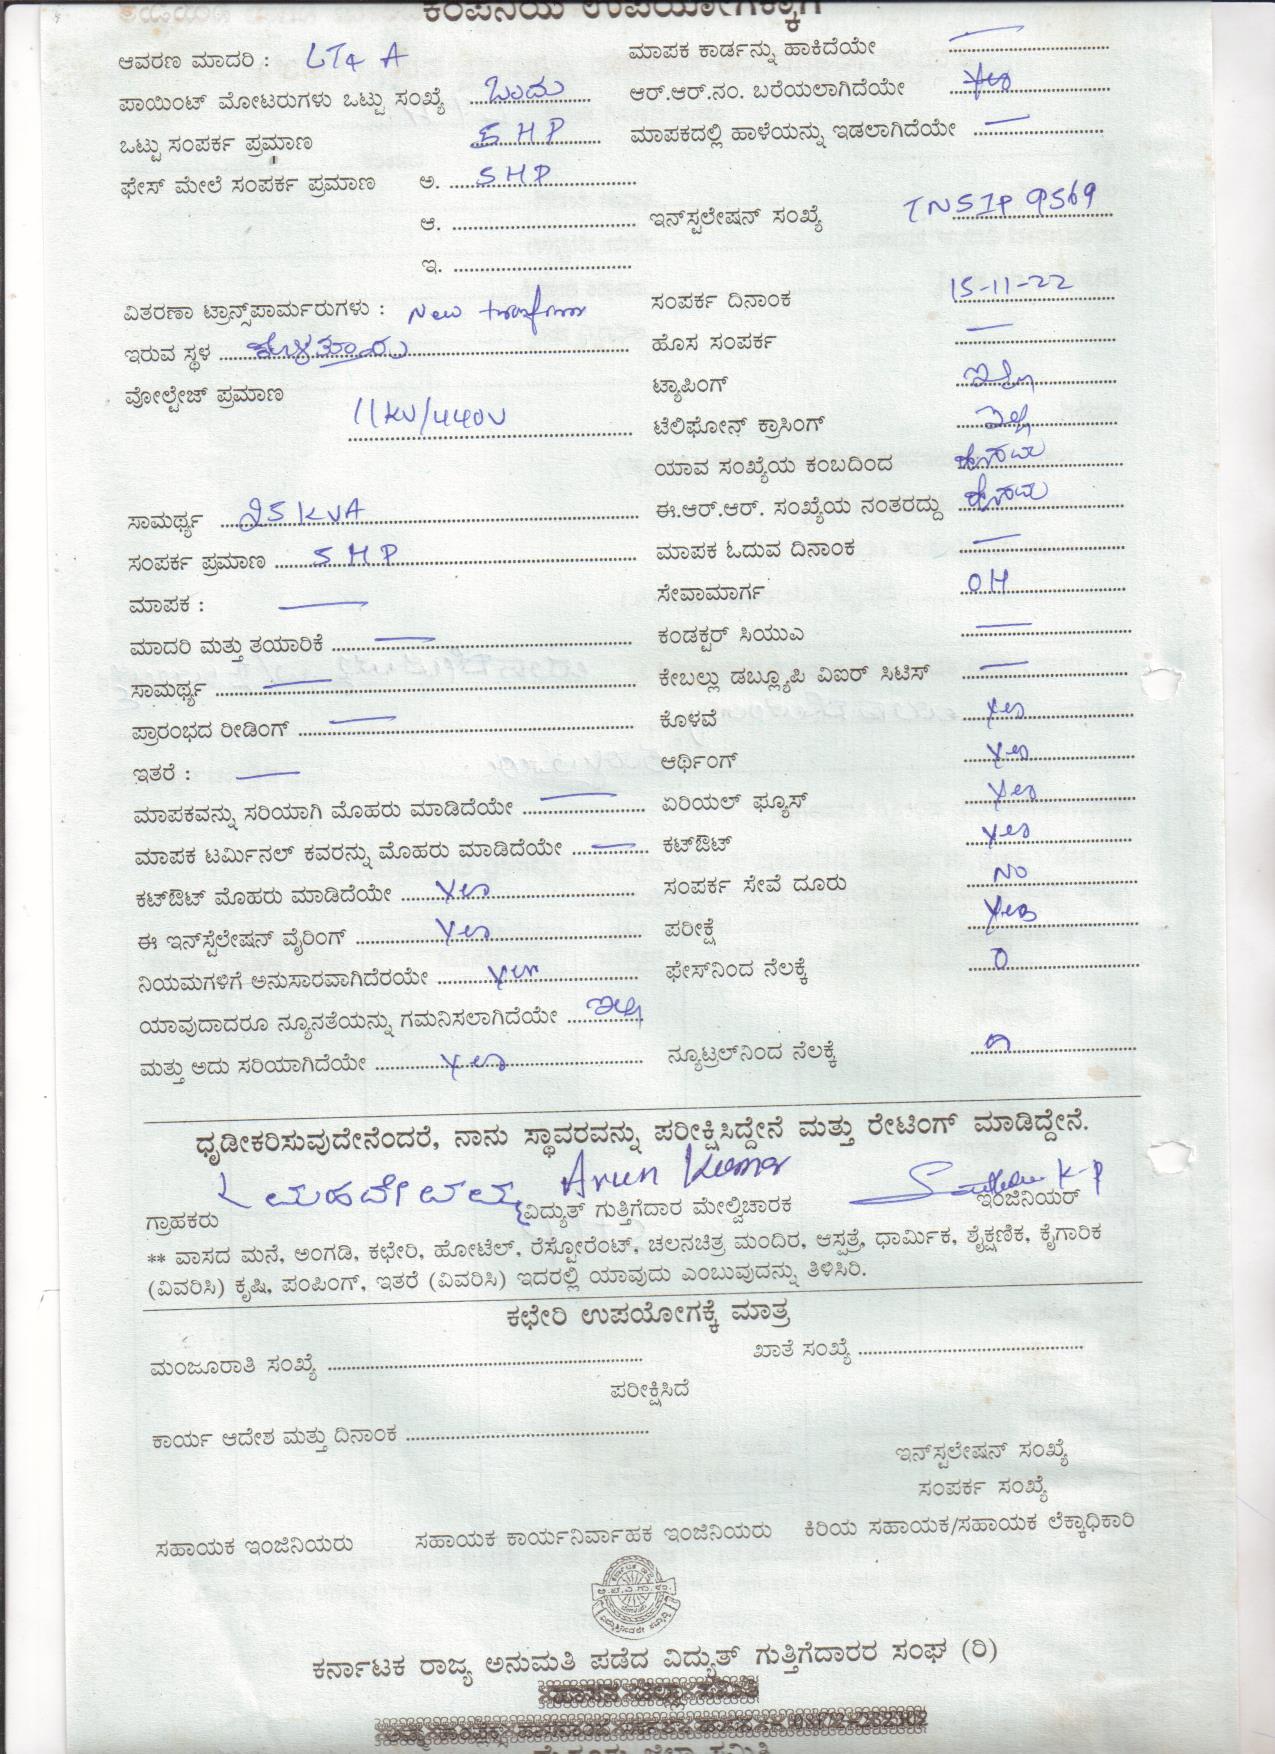 ಕಂಪನಿಯ ಉಪಯೋಗಕ್ಕಾಗಿ
ಆವರಣ ಮಾದರಿ : LT4 A
ಮಾಪಕ ಕಾರ್ಡನ್ನು ಹಾಕಿದೆಯೇ
ಪಾಯಿಂಟ್ ಮೋಟರುಗಳು ಒಟ್ಟು ಸಂಖ್ಯೆ ಒಂದು
ಆರ್.ಆರ್.ನಂ. ಬರೆಯಲಾಗಿದೆಯೇ Yes
ಒಟ್ಟು ಸಂಪರ್ಕ ಪ್ರಮಾಣ 5 HP
ಮಾಪಕದಲ್ಲಿ ಹಾಳೆಯನ್ನು ಇಡಲಾಗಿದೆಯೇ
ಫೇಸ್ ಮೇಲೆ ಸಂಪರ್ಕ ಪ್ರಮಾಣ ಅ. 5 HP
ಆ.
ಇನ್‌ಸ್ಟಲೇಷನ್ ಸಂಖ್ಯೆ TNSIP 9569
ಇ.
ವಿತರಣಾ ಟ್ರಾನ್ಸ್‌ಪಾರ್ಮರುಗಳು : New
ಸಂಪರ್ಕ ದಿನಾಂಕ 15-11-22
ಇರುವ ಸ್ಥಳ
ಹೊಸ ಸಂಪರ್ಕ
ವೋಲ್ಟೇಜ್ ಪ್ರಮಾಣ 11KV/440V
ಟ್ಯಾಪಿಂಗ್ ಇಲ್ಲ
ಟೆಲಿಫೋನ್ ಕ್ರಾಸಿಂಗ್ ಇಲ್ಲ
ಯಾವ ಸಂಖ್ಯೆಯ ಕಂಬದಿಂದ
ಸಾಮರ್ಥ್ಯ 25 KVA
ಈ.ಆರ್.ಆರ್. ಸಂಖ್ಯೆಯ ನಂತರದ್ದು
ಸಂಪರ್ಕ ಪ್ರಮಾಣ 5 HP
ಮಾಪಕ ಓದುವ ದಿನಾಂಕ
ಮಾಪಕ :
ಸೇವಾಮಾರ್ಗ OH
ಮಾದರಿ ಮತ್ತು ತಯಾರಿಕೆ
ಕಂಡಕ್ಟರ್ ಸಿಯುಎ
ಸಾಮರ್ಥ್ಯ
ಕೇಬಲ್ಲು ಡಬ್ಲ್ಯೂಪಿ ವಿಐರ್ ಸಿಟಿಸ್
ಪ್ರಾರಂಭದ ರೀಡಿಂಗ್
ಕೊಳವೆ Yes
ಇತರೆ :
ಆರ್ಥಿಂಗ್ Yes
ಮಾಪಕವನ್ನು ಸರಿಯಾಗಿ ಮೊಹರು ಮಾಡಿದೆಯೇ
ಏರಿಯಲ್ ಫ್ಯೂಸ್ Yes
ಮಾಪಕ ಟರ್ಮಿನಲ್ ಕವರನ್ನು ಮೊಹರು ಮಾಡಿದೆಯೇ
ಕಟ್‌ಔಟ್ Yes
ಕಟ್‌ಔಟ್ ಮೊಹರು ಮಾಡಿದೆಯೇ Yes
ಸಂಪರ್ಕ ಸೇವೆ ದೂರು No
ಈ ಇನ್‌ಸ್ಟೆಲೇಷನ್ ವೈರಿಂಗ್ Yes
ಪರೀಕ್ಷೆ Yes
ನಿಯಮಗಳಿಗೆ ಅನುಸಾರವಾಗಿದೆರಯೇ Yes
ಫೇಸ್‌ನಿಂದ ನೆಲಕ್ಕೆ 0
ಯಾವುದಾದರೂ ನ್ಯೂನತೆಯನ್ನು ಗಮನಿಸಲಾಗಿದೆಯೇ ಇಲ್ಲ
ಮತ್ತು ಅದು ಸರಿಯಾಗಿದೆಯೇ Yes
ನ್ಯೂಟ್ರಲ್‌ನಿಂದ ನೆಲಕ್ಕೆ 0
ಧೃಡೀಕರಿಸುವುದೇನೆಂದರೆ, ನಾನು ಸ್ಥಾವರವನ್ನು ಪರೀಕ್ಷಿಸಿದ್ದೇನೆ ಮತ್ತು ರೇಟಿಂಗ್ ಮಾಡಿದ್ದೇನೆ.
Arun Kumar
K-P
ಗ್ರಾಹಕರು ವಿದ್ಯುತ್ ಗುತ್ತಿಗೆದಾರ ಮೇಲ್ವಿಚಾರಕ ಇಂಜಿನಿಯರ್
** ವಾಸದ ಮನೆ, ಅಂಗಡಿ, ಕಛೇರಿ, ಹೋಟೆಲ್, ರೆಸ್ಟೋರೆಂಟ್, ಚಲನಚಿತ್ರ ಮಂದಿರ, ಆಸ್ಪತ್ರೆ, ಧಾರ್ಮಿಕ, ಶೈಕ್ಷಣಿಕ, ಕೈಗಾರಿಕ
(ವಿವರಿಸಿ) ಕೃಷಿ, ಪಂಪಿಂಗ್, ಇತರೆ (ವಿವರಿಸಿ) ಇದರಲ್ಲಿ ಯಾವುದು ಎಂಬುವುದನ್ನು ತಿಳಿಸಿರಿ.
ಕಛೇರಿ ಉಪಯೋಗಕ್ಕೆ ಮಾತ್ರ
ಮಂಜೂರಾತಿ ಸಂಖ್ಯೆ
ಖಾತೆ ಸಂಖ್ಯೆ
ಪರೀಕ್ಷಿಸಿದೆ
ಕಾರ್ಯ ಆದೇಶ ಮತ್ತು ದಿನಾಂಕ
ಇನ್‌ಸ್ಟಲೇಷನ್ ಸಂಖ್ಯೆ
ಸಂಪರ್ಕ ಸಂಖ್ಯೆ
ಸಹಾಯಕ ಇಂಜಿನಿಯರು ಸಹಾಯಕ ಕಾರ್ಯನಿರ್ವಾಹಕ ಇಂಜಿನಿಯರು ಕಿರಿಯ ಸಹಾಯಕ/ಸಹಾಯಕ ಲೆಕ್ಕಾಧಿಕಾರಿ
ಕರ್ನಾಟಕ ರಾಜ್ಯ ಅನುಮತಿ ಪಡೆದ ವಿದ್ಯುತ್ ಗುತ್ತಿಗೆದಾರರ ಸಂಘ (ರಿ)